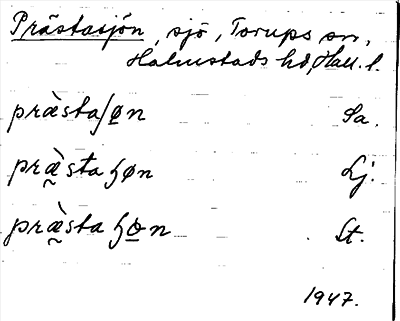 Prästasjön, sjö, Torups sn,
Halmstads hd, Hall. l.
prä̀sta/øn Sa.
præ̀sta ɧøn Lj.
præ̀sta ɧøn St.
1947.